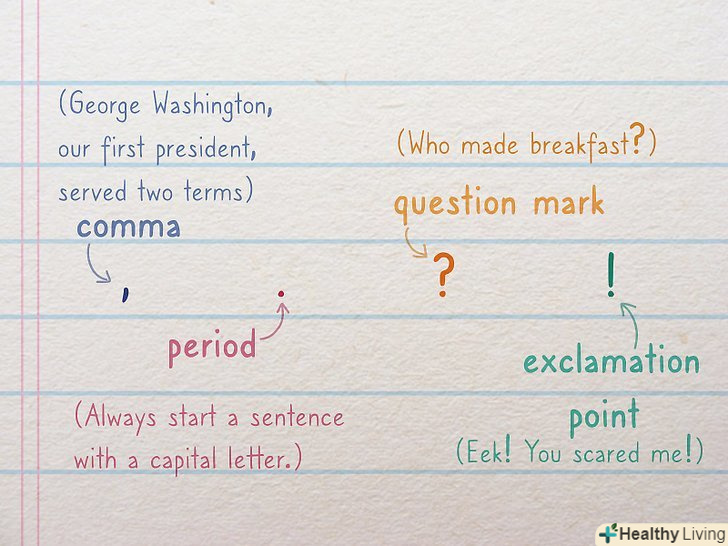 (George Washington,
our first president,
served two terms)
comma
,
.
period
(Always start a sentence
with a capital letter.)
(Who made breakfast?)
question mark
?
!
exclamation
point
(Eek! You scared me!)
Healthy Living